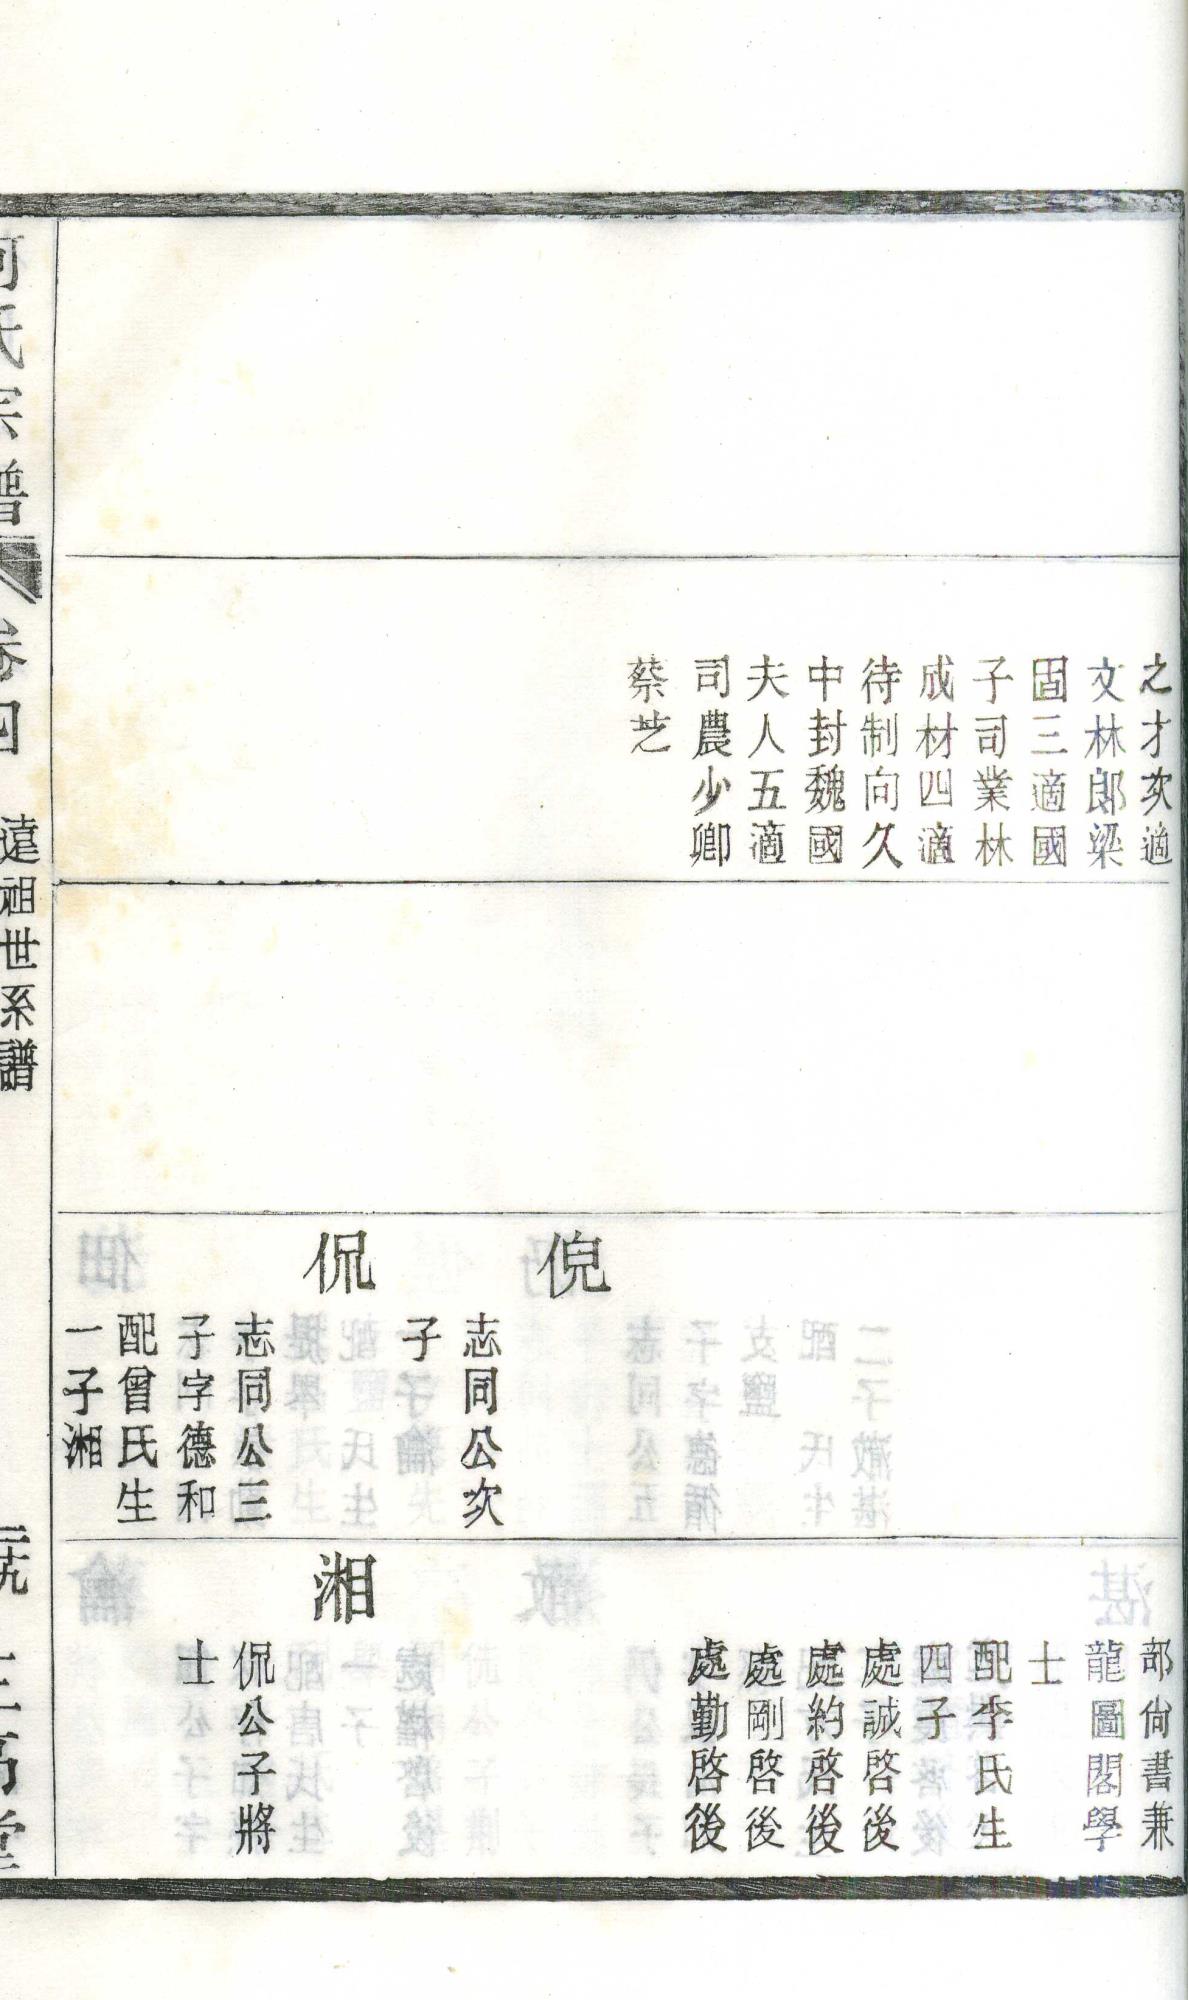 之才次適
文林郎梁
固三適國
子司業林
成材四適
待制向久
中封魏國
夫人五適
司農少卿
蔡芝
倪
志同公次
子
侃
志同公三
子字德和
配曾氏生
一子湘
部尙書兼
龍圖閣學
士
配李氏生
四子
處誠啓後
處約啓後
處剛啓後
處勤啓後
湘
侃公子將
士
何氏宗譜
卷四
遠祖世系譜